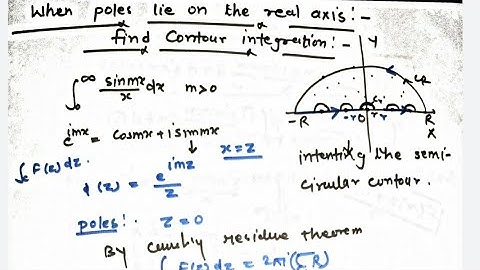 When poles lie on the real axis:-
find Contour integration:-
∫₀^∞ sinmx/x dx m>0
e^{imx} = cosmx + i sinmx
x=z
∫_C F(z)dz.
φ(z) = e^{imz}/z
poles:. z=0
By cauchy residue theorem
∫ F(z)dz = 2πi(ΣR)
Y
C_R
C_r
-R -r O r R
X
the semi-
circular contour.